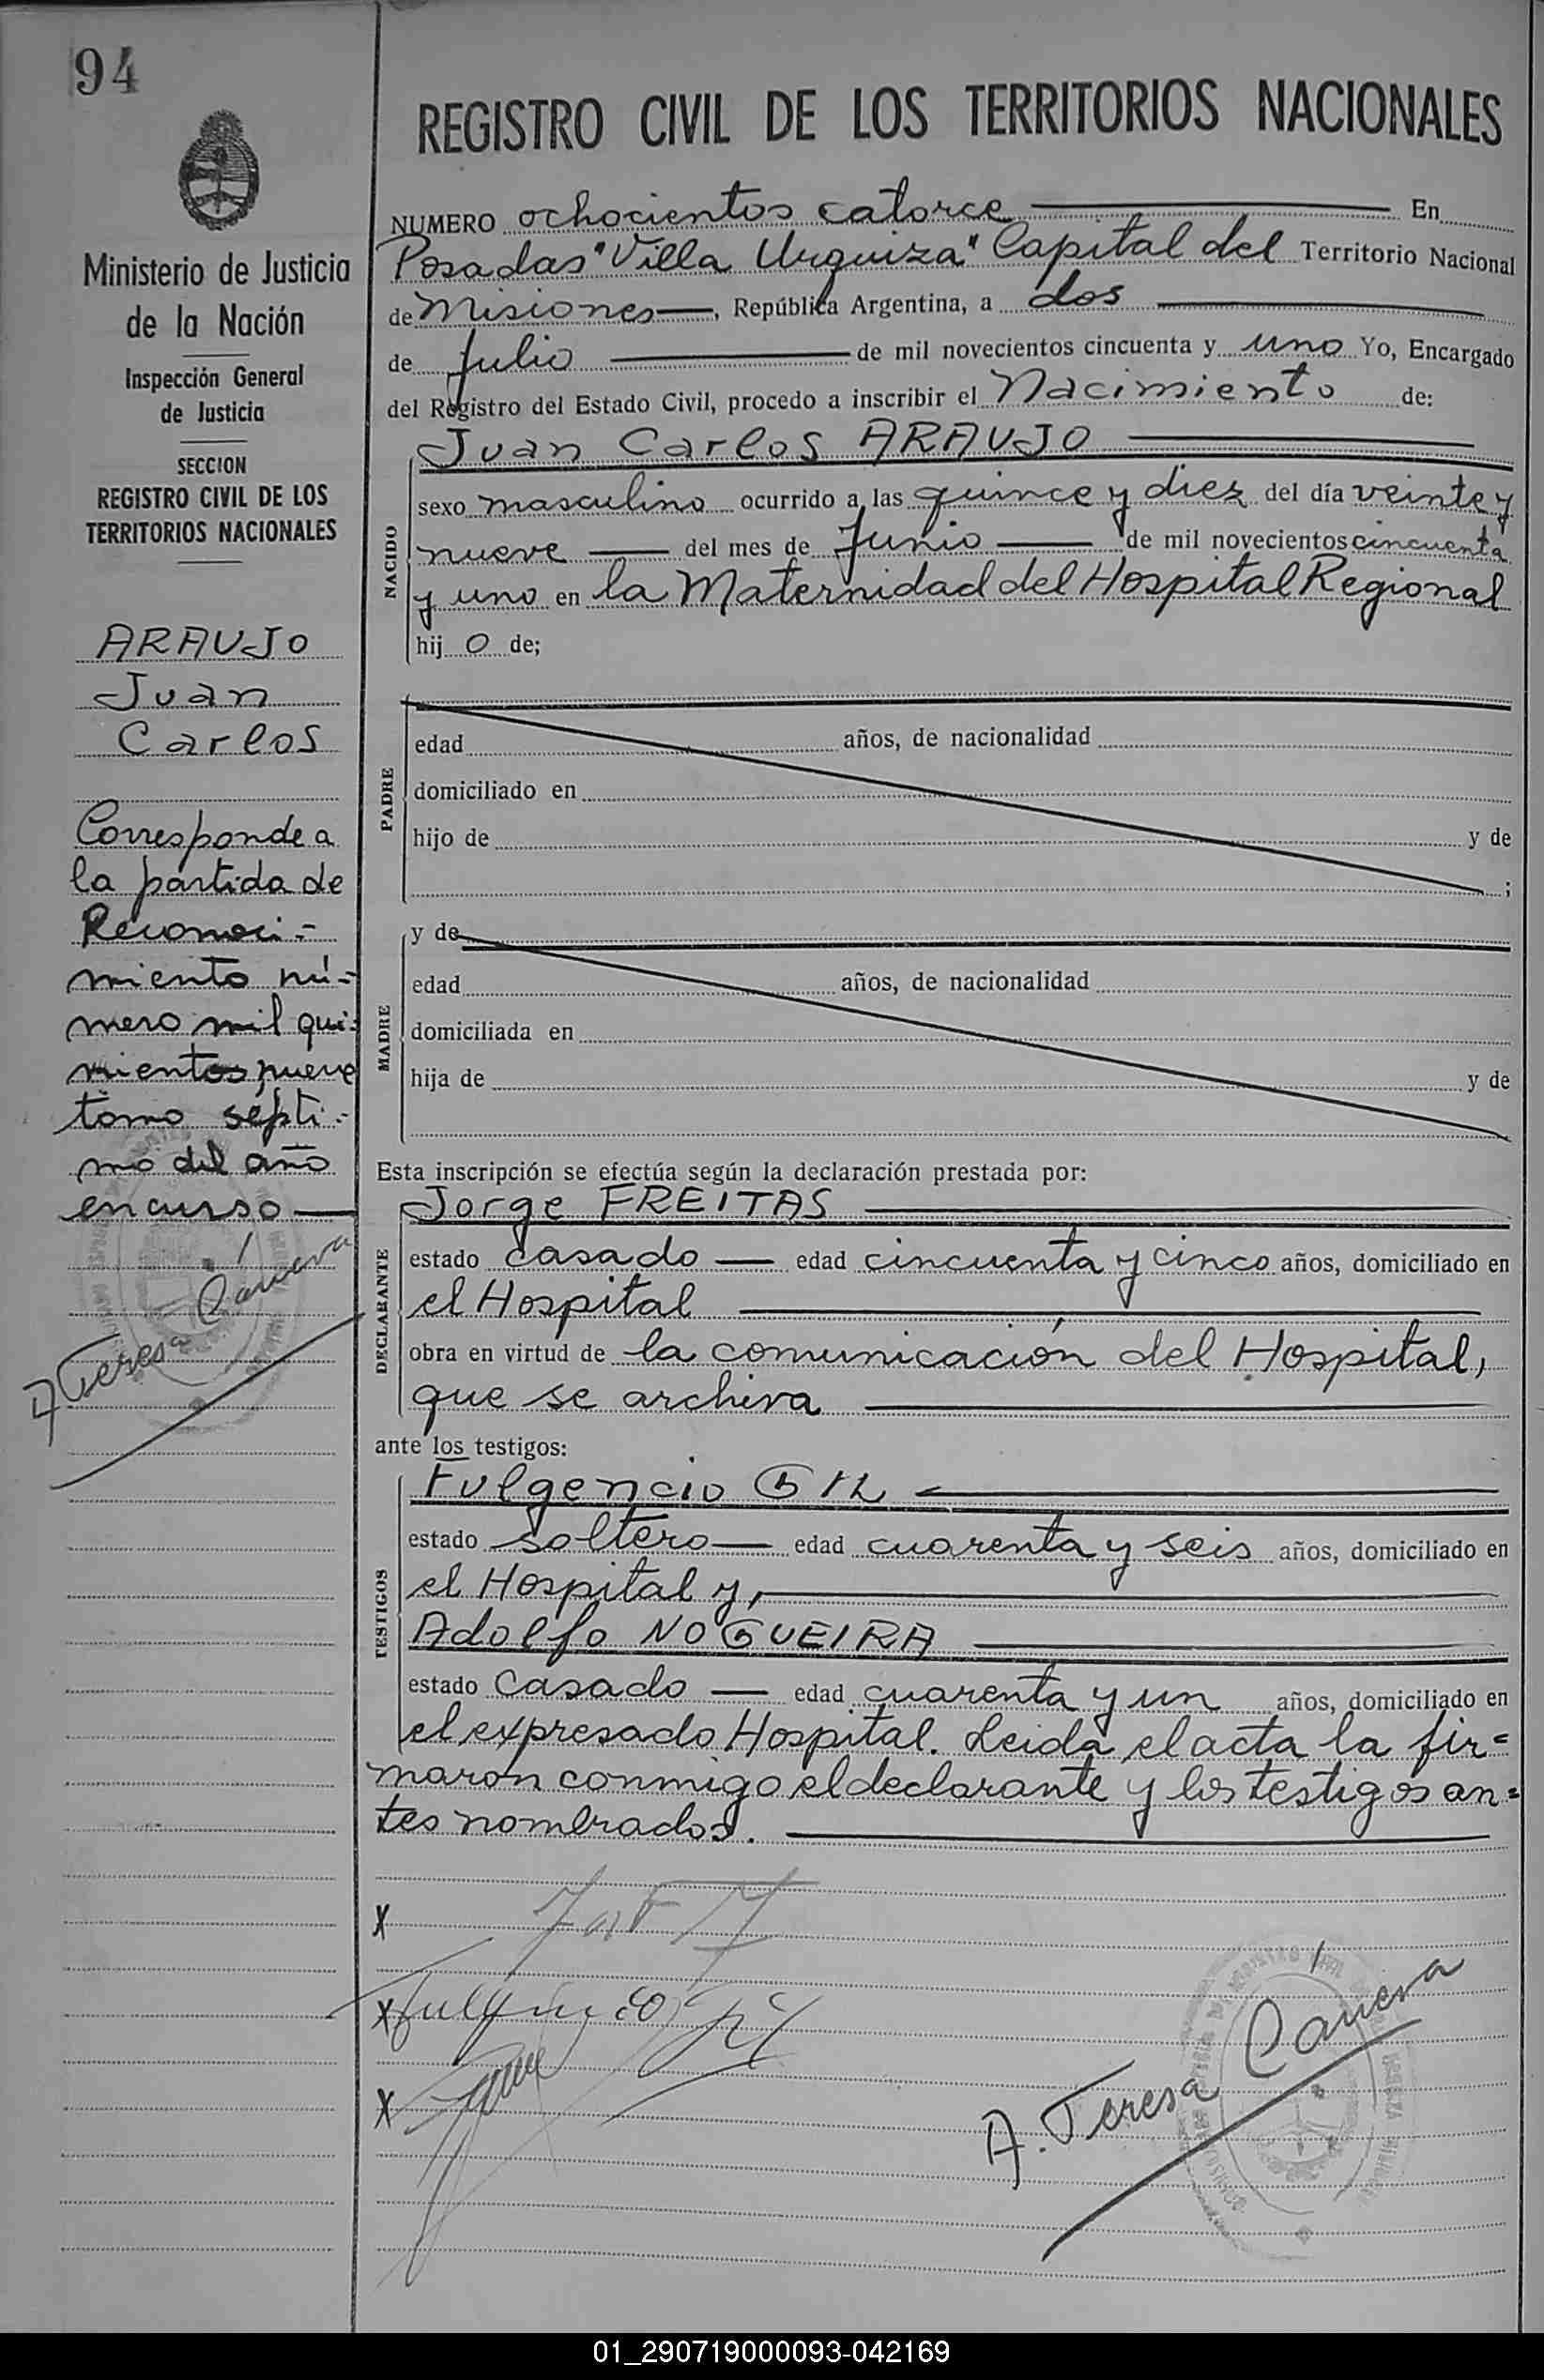 94
Ministerio de Justicia
de la Nación
Inspección General
de Justicia
SECCION
REGISTRO CIVIL DE LOS
TERRITORIOS NACIONALES
ARAUJO
Juan
Carlos
Corresponde a
la partida de
Reconoci=
miento nú=
mero mil qui=
nientos nueve
tomo septi=
mo del año
en curso
A Teresa Cáneva
REGISTRO CIVIL DE LOS TERRITORIOS NACIONALES
NUMERO ochocientos catorce En
Posadas "Villa Urquiza" Capital del Territorio Nacional
de Misiones, República Argentina, a dos
de Julio de mil novecientos cincuenta y uno Yo, Encargado
del Registro del Estado Civil, procedo a inscribir el Nacimiento de:
NACIDO
Juan Carlos ARAUJO
sexo masculino ocurrido a las quince y diez del día veinte y
nueve del mes de Junio de mil novecientos cincuenta
y uno en la Maternidad del Hospital Regional
hij o de;
PADRE
edad años, de nacionalidad
domiciliado en
hijo de y de
;
MADRE
y de
edad años, de nacionalidad
domiciliada en
hija de y de
Esta inscripción se efectúa según la declaración prestada por:
DECLARANTE
Jorge FREITAS
estado casado edad cincuenta y cinco años, domiciliado en
el Hospital
obra en virtud de la comunicación del Hospital,
que se archiva
ante los testigos:
TESTIGOS
Fulgencio GIL
estado soltero edad cuarenta y seis años, domiciliado en
el Hospital y,
Adolfo NOGUEIRA
estado casado edad cuarenta y un años, domiciliado en
el expresado Hospital. Leida el acta la fir=
maron conmigo el declarante y los testigos an=
tes nombrados.
X
X Fulgencio Gil
X
A. Teresa Cáneva
01_290719000093-042169